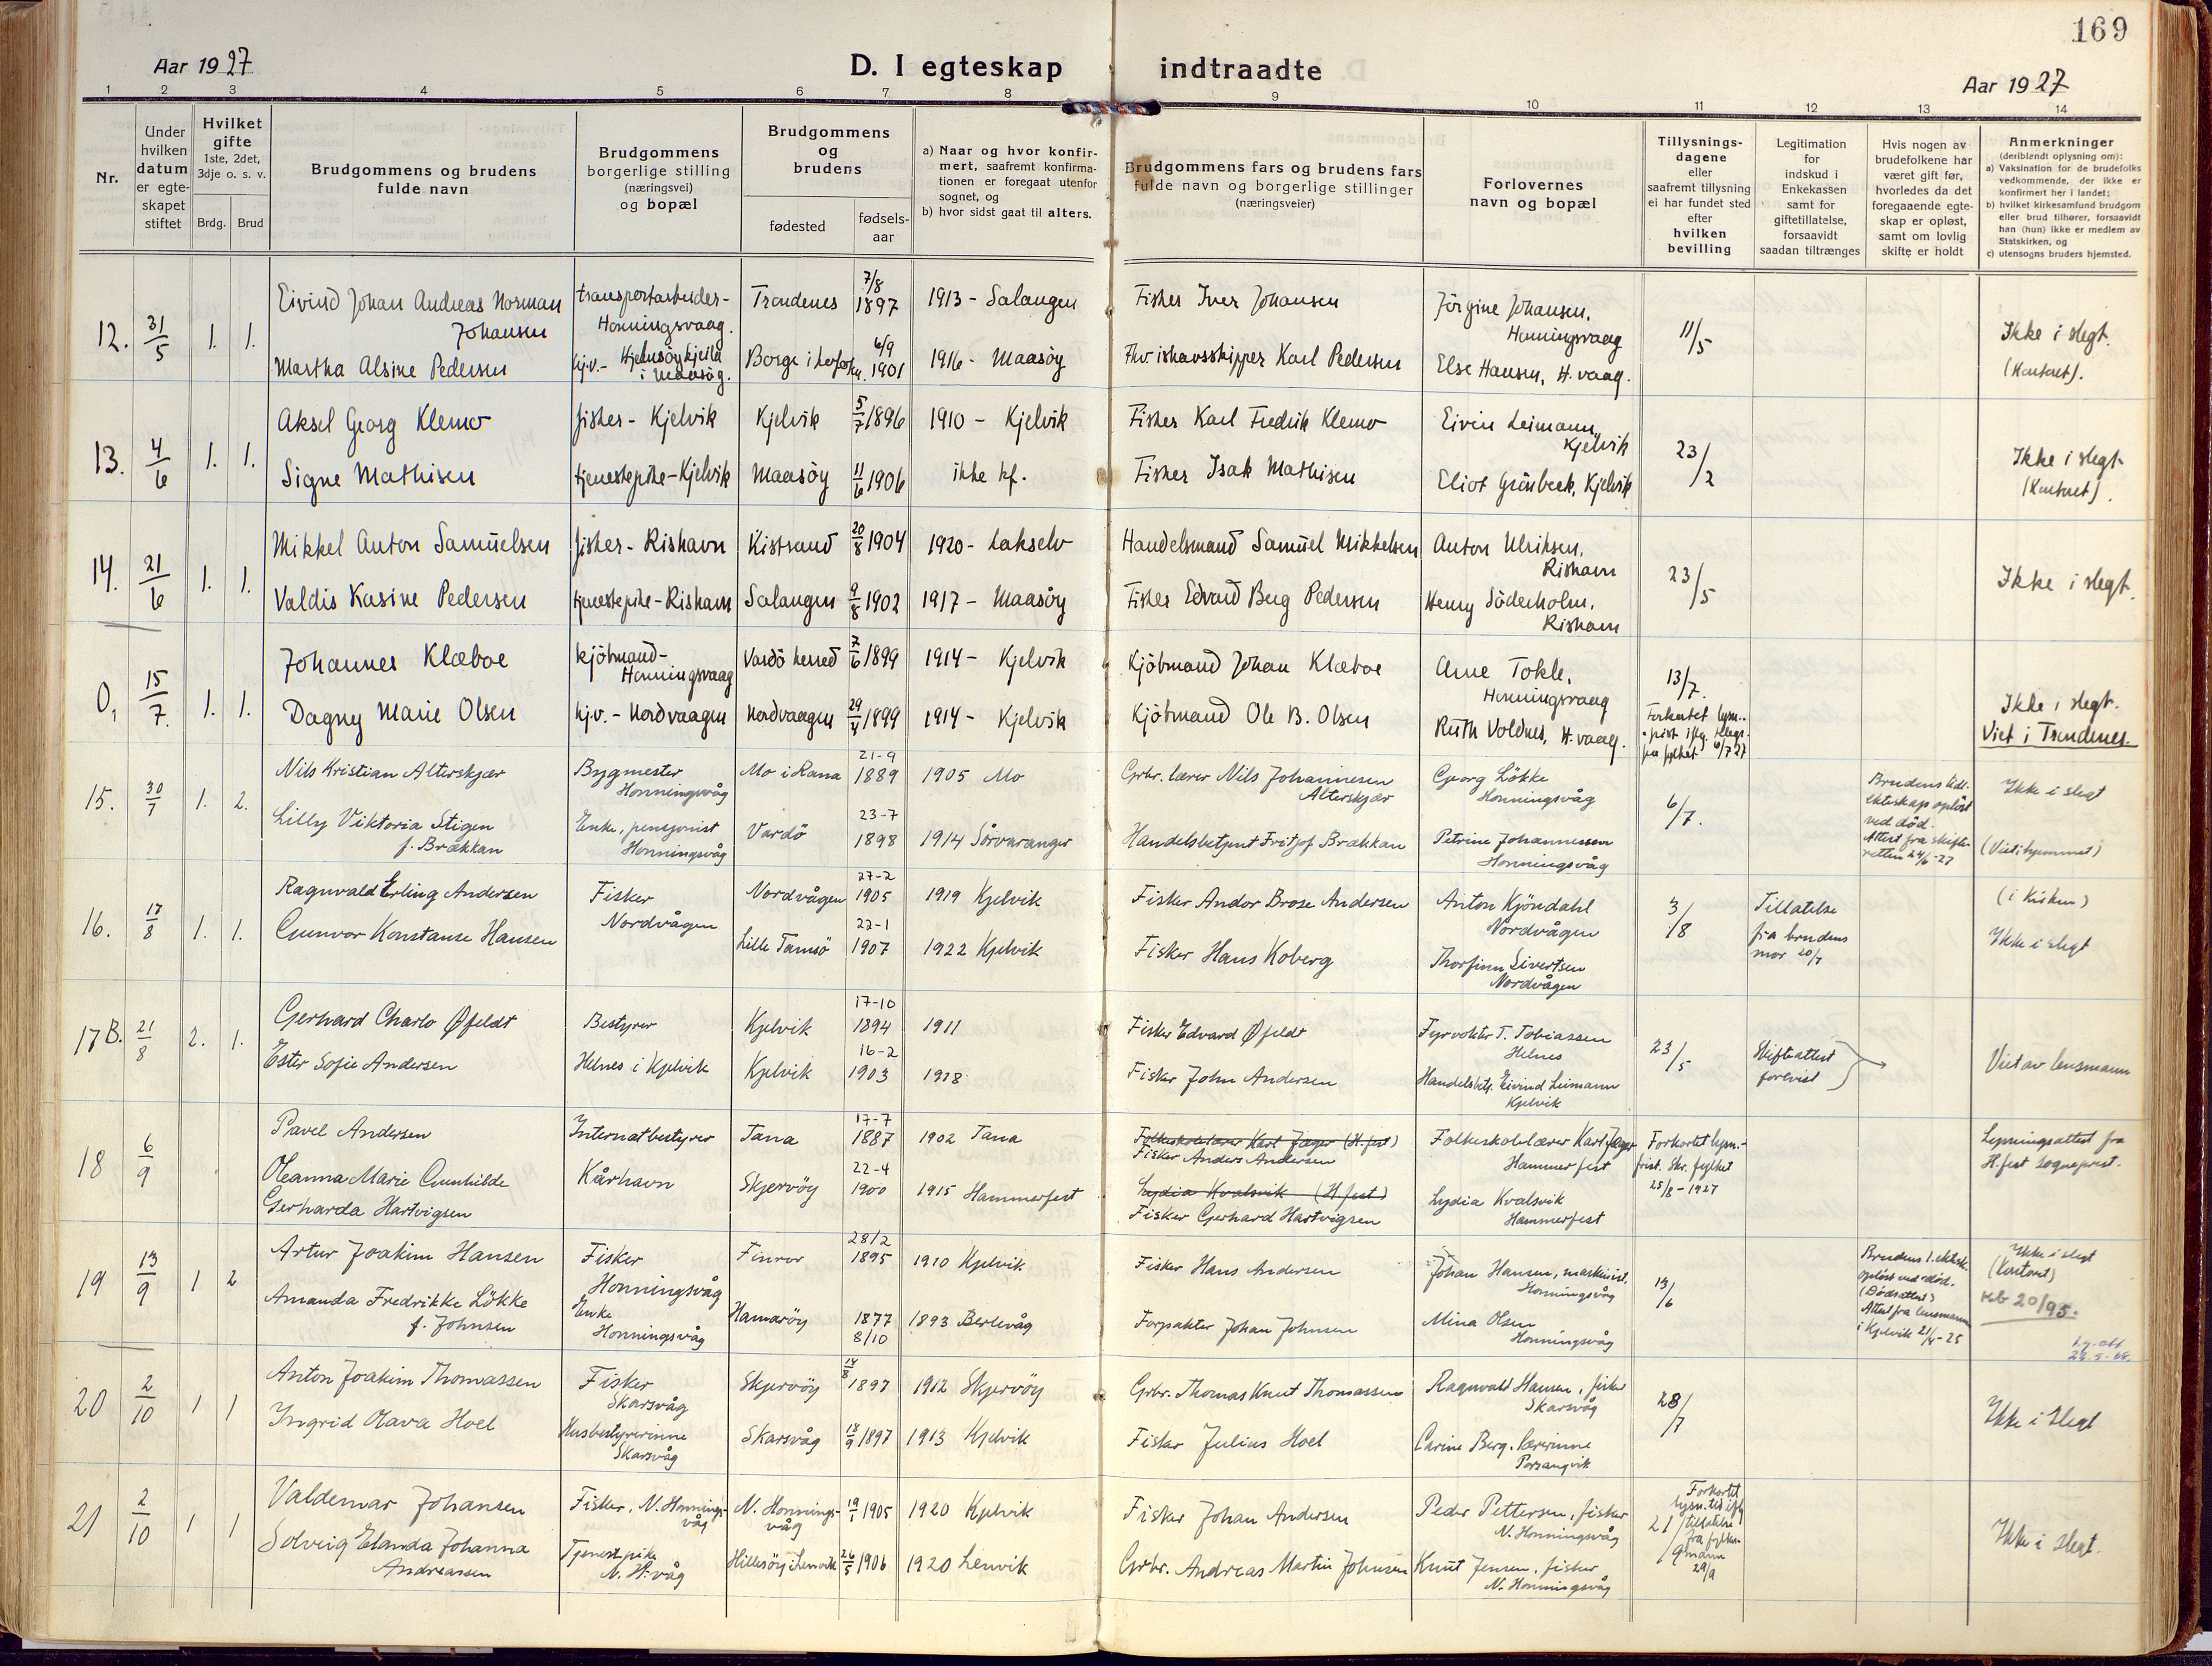 169
Aar 1927
D. I egteskap indtraadte
Aar 1927
1 2 3 4 5 6 7 8 9 10 11 12 13 14
Nr.
Under hvilken datum er egteskapet stiftet
Hvilket gifte
1ste, 2det, 3dje o. s. v.
Brdg. Brud
Brudgommens og brudens fulde navn
Brudgommens borgerlige stilling (næringsvei) og bopæl
Brudgommens og brudens
fødested
fødsels-aar
a) Naar og hvor konfirmert, saafremt konfirmationen er foregaat utenfor sognet, og
b) hvor sidst gaat til alters.
Brudgommens fars og brudens fars fulde navn og borgerlige stillinger (næringsveier)
Forlovernes navn og bopæl
Tillysningsdagene eller saafremt tillysning ei har fundet sted efter hvilken bevilling
Legitimation for indskud i Enkekassen samt for giftetillatelse, forsaavidt saadan tiltrænges
Hvis nogen av brudefolkene har været gift før, hvorledes da det foregaaende egteskap er opløst, samt om lovlig skifte er holdt
Anmerkninger
(deriblandt oplysning om):
a) Vaksination for de brudefolks vedkommende, der ikke er konfirmert her i landet;
b) hvilket kirkesamfund brudgom eller brud tilhører, forsaavidt han (hun) ikke er medlem av Statskirken, og
c) utensogns bruders hjemsted.
12. 31/5 1. 1.
Eivind Johan Andreas Norman Johansen
transportarbeider - Honningsvaag.
Trondenes 7/8 1897 1913 - Salangen
Fisker Iver Johansen
Jörgine Johansen, Honningsvaag
11/5
Ikke i slegt.
(Kontoret).
Martha Alsine Pedersen
hj.v. - Hjelmsöy kjeila i Maasöy.
Borge i Lofoten. 6/9 1901 1916 - Maasöy
Fhv ishavsskipper Karl Pedersen
Else Hansen, H.vaag.
13. 4/6 1. 1.
Aksel Georg Klemo
fisker - Kjelvik Kjelvik 5/7 1896 1910 - Kjelvik
Fisker Karl Fredrik Klemo
Eivin Leimann, Kjelvik
23/2
Ikke i slegt
(Kontoret).
Signe Mathisen
tjenestepike - Kjelvik Maasöy 11/6 1906 ikke kf.
Fisker Isak Mathisen
Eliot Grünbeck, Kjelvik
14. 21/6 1. 1.
Mikkel Anton Samuelsen
fisker - Rishavn Kistrand 20/8 1904 1920 - Lakselv
Handelsmand Samuel Mikkelsen
Anton Ulriksen, Rishavn
23/5
Ikke i slegt.
Valdis Kasine Pedersen
tjenestepike - Rishavn Salangen 9/8 1902 1917 - Maasöy
Fisker Edvard Berg Pedersen
Henry Söderholm, Rishavn
0, 15/7. 1. 1.
Johannes Klæboe
kjöbmand - Honningsvaag
Vardö herred 7/6 1899 1914 - Kjelvik
Kjöbmand Johan Klæboe
Arne Tokle, Honningsvaag
13/7.
Forkortet lysn.-frist iflg. telegr. fra fylket 6/7 27
Ikke i slegt.
Viet i Trondenes.
Dagny Marie Olsen
hj.v. - Nordvaagen Nordvaagen 29/4 1899 1914 - Kjelvik
Kjöbmand Ole B. Olsen
Ruth Voldnes, H.vaag.
15. 30/7 1. 2.
Nils Kristian Alterskjær
Bygmester Honningsvåg
Mo i Rana 21-9 1889 1905 Mo
Grbr. lærer Nils Johannesen Alterskjær
Georg Lökke Honningsvåg
6/7.
Brudens tidl. ekteskap oplöst ved död. Attest fra skifteretten 24/6-27
Ikke i slegt
(Viet i hjemmet)
Lilly Viktoria Stigen f. Brækkan
Enke, pensjonist Honningsvåg
Vardö 23-7 1898 1914 Sörvaranger
Handelsbetjent Fritjof Brækkan
Petrine Johannessen Honningsvåg
16. 17/8 1. 1.
Ragnvald Erling Andersen
Fisker Nordvågen
Nordvågen 27-2 1905 1919 Kjelvik
Fisker Andor Brose Andersen
Anton Kjöndahl Nordvågen
3/8
Tillatelse fra brudens mor 20/7
(i Kirken)
Ikke i slegt
Gunvor Konstanse Hansen
Lille Tamsö 22-1 1907 1922 Kjelvik
Fisker Hans Koberg
Thorfinn Sivertsen Nordvågen
17B. 21/8 2. 1.
Gerhard Charlo Øfeldt
Bestyrer Kjelvik 17-10 1894 1911
Fisker Edvard Øfeldt
Fyrvokter T. Tobiassen Helnes
23/5
Skifteattest forevist
Viet av lensmann
Ester Sofie Andersen
Helnes i Kjelvik Kjelvik 16-2 1903 1918
Fisker John Andersen
Handelsbetj. Eivind Leimann Kjelvik
18 6/9
Pavel Andersen
Internatbestyrer Tana 17-7 1887 1902 Tana
Folkeskolelærer Karl Jæger (H.fest)
Fisker Anders Andersen
Folkeskolelærer Karl Jæger Hammerfest
Forkortet lysn.-frist. Skr. fylket 25/8-1927
Lysningsattest fra H.fest sogneprest.
Oleanna Marie Gunhilde Gerharda Hartvigsen
Kårhavn Skjervöy 22-4 1900 1915 Hammerfest
Lydia Kvalsvik (H.fest)
Fisker Gerhard Hartvigsen
Lydia Kvalsvik Hammerfest
19 13/9 1 2
Artur Joakim Hansen
Fisker Honningsvåg
28/2 1895 1910 Kjelvik
Fisker Hans Andersen
Johan Hansen, maskinist, Honningsvåg
13/6
Brudens 1. ektesk. oplöst ved död. (Dödsattest) Attest fra lensmann i Kjelvik 21/4-25
Ikke i slegt
(Kontoret)
20/95.
Amanda Fredrikke Lökke f. Johnsen
Enke Honningsvåg
Hamaröy 1877 8/10 1893 Berlevåg
Forpakter Johan Johnsen
Mina Olsen Honningsvåg
20 2/10 1 1
Anton Joakim Thomassen
Fisker Skarsvåg
Skjervöy 14/8 1897 1912 Skjervöy
Grbr. Thomas Knut Thomassen
Ragnvald Hansen, fisker Skarsvåg
28/7
Ikke i slegt
Ingrid Olava Hoel
Husbestyrerinne Skarsvåg
Skarsvåg 18/9 1897 1913 Kjelvik
Fisker Julius Hoel
Carine Berg. lærerinne Porsangvik
21 2/10 1 1
Valdemar Johansen
Fisker, N. Honningsvåg
N. Honningsvåg 19/1 1905 1920 Kjelvik
Fisker Johan Andersen
Peder Pettersen, fisker N. Honningsvåg
21/9
Forkortet lysn.tid iflg tillatelse fra fylkesmann 29/9
Ikke i slegt.
Solveig Elanda Johanna Andreassen
Tjenestpike N. H.våg
Hillesöy i Lenvik 26/5 1906 1920 Lenvik
Grbr. Andreas Martin Johnsen
Knut Jensen, fisker N. Honningsvåg